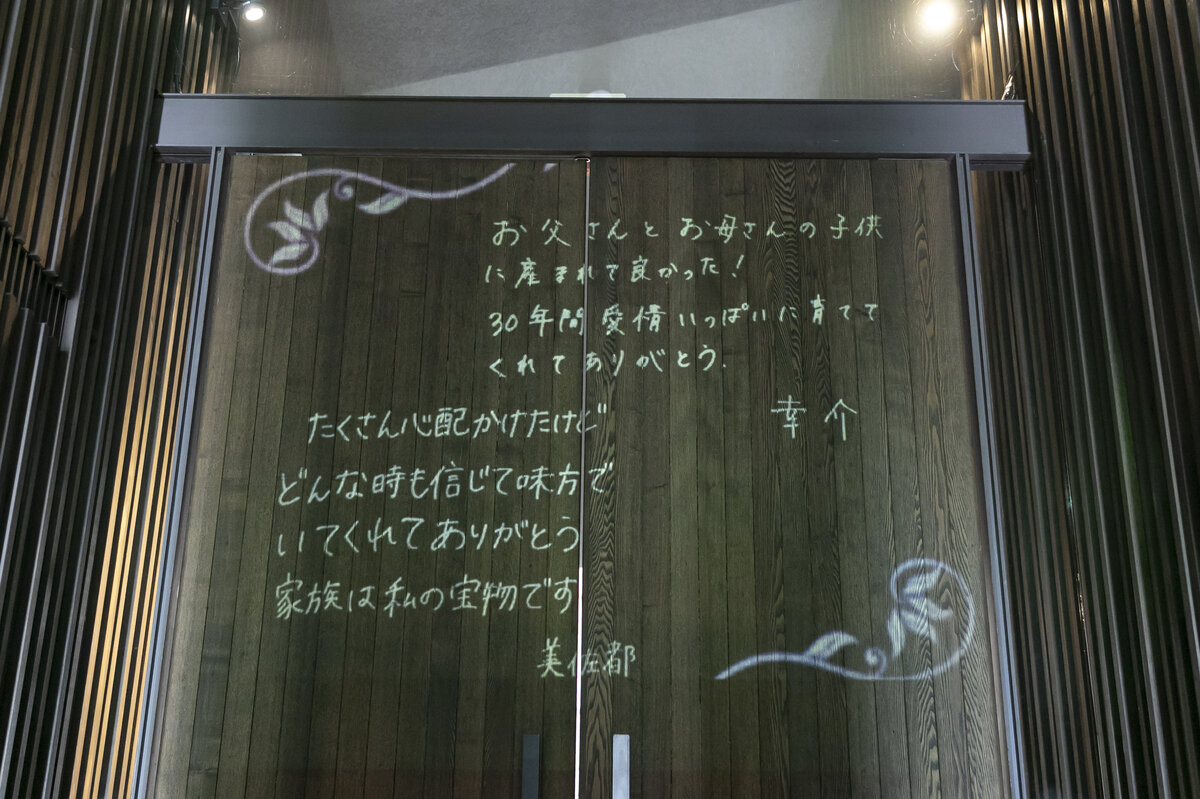 お父さんとお母さんの子供
に産まれて良かった！
30年間愛情いっぱいに育てて
くれてありがとう.
幸介
たくさん心配かけたけど
どんな時も信じて味方で
いてくれてありがとう
家族は私の宝物です
美佐都